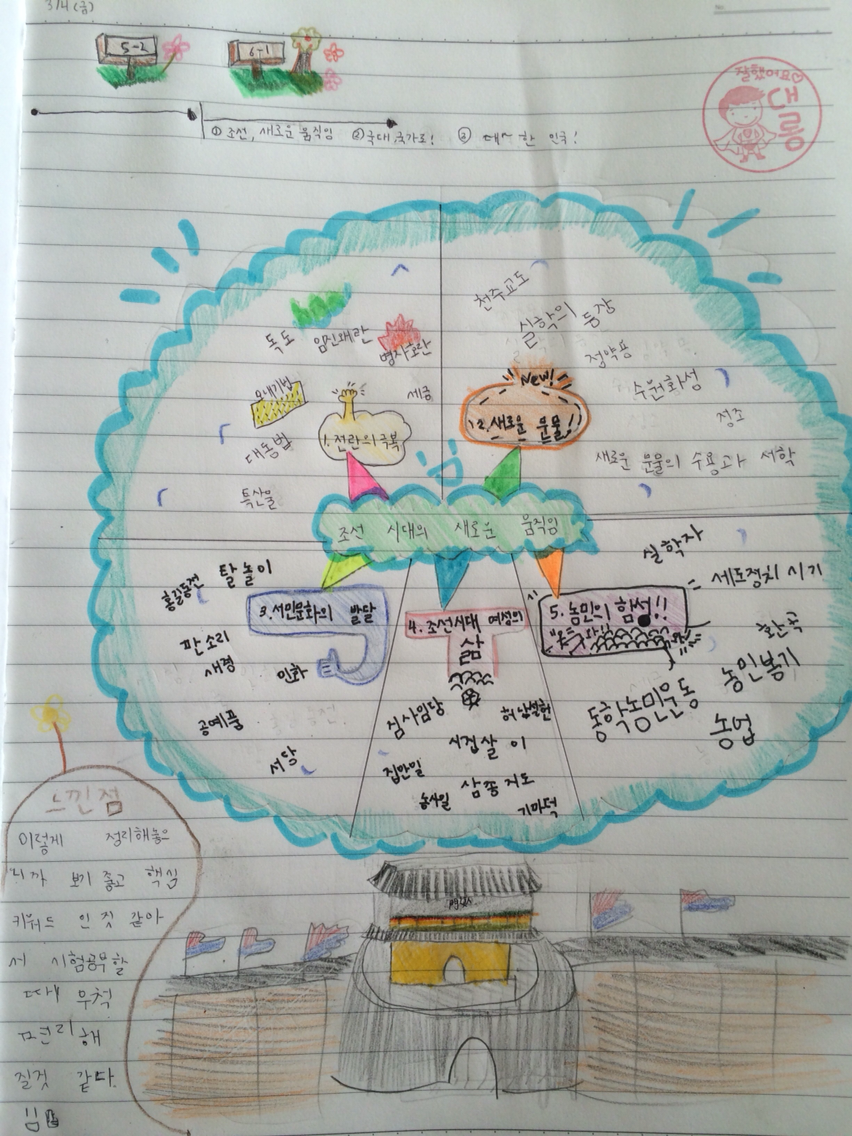 3/4 (금)
5-2
6-1
① 조선, 새로운 움직임 ② 근대 국가로! ③ 대 한 민국!
잘했어요♡
댈롱
천주교도
실학의 등장
독도 임진왜란
병자호란
정약용
모내기법
세금
New!
수원화성
1. 전란의 극복
2. 새로운 문물!
정조
대동법
새로운 문물의 수용과 서학
특산물
조선 시대의 새로운 움직임
실학자
홍길동전 탈놀이
세도정치 시기
3. 서민문화의 발달
4. 조선시대 여성의
삶
5. 농민의 함성!!
판소리
환곡
민화
농민봉기
공예품
신사임당
허난설헌
동학농민운동
농업
서당
시집살이
집안일
삼종지도
농사일
기마덕
느낀점
이렇게 정리해놓으
니까 보기 좋고 핵심
키워드 인 것 같아
서 시험공부할
때 무척
편리해
질것 같다.